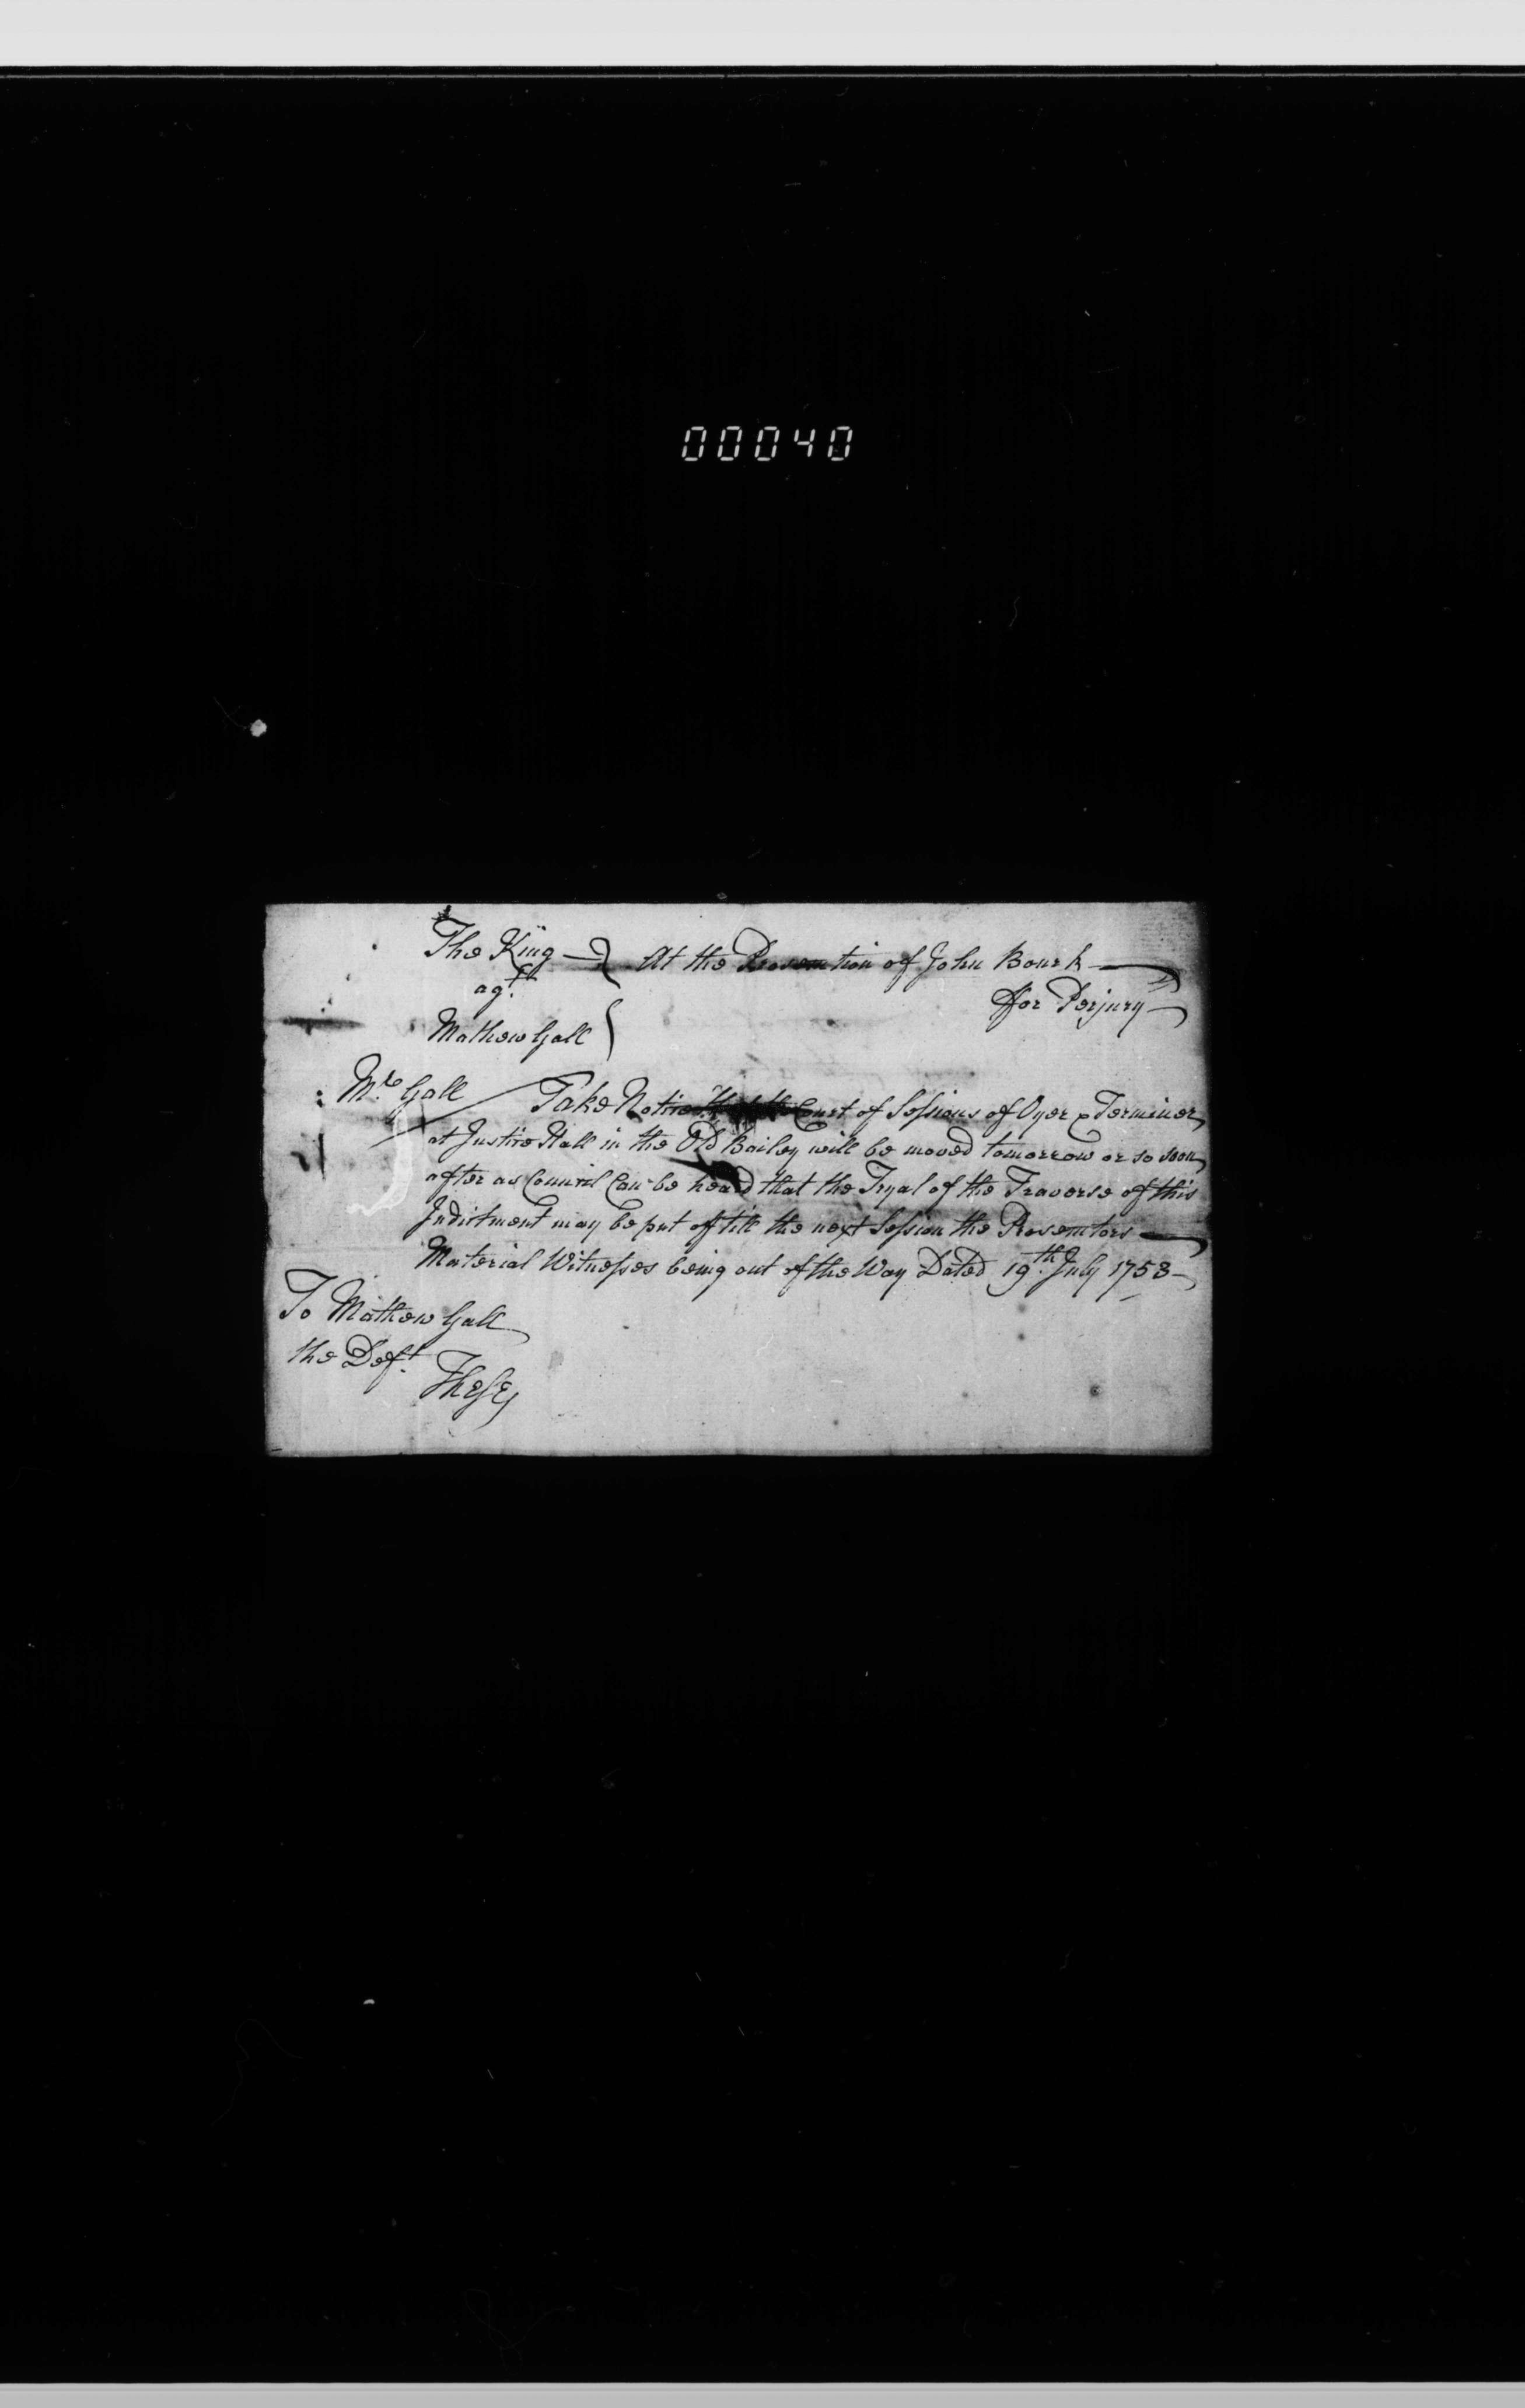 00040
The King
At the Prosecution of John Bourk
agt.
for Perjury
Mathew Gall
Mr. Gall Take Notice that the Court of Sessions of Oyer & Terminer
at Justice Hall in the Old Bailey will be moved tomorrow or so soon
after as Council Can be heard that the Tryal of the Traverse of this
Indictment may be put off till the next Session the Prosecutors
Material Witnesses being out of the Way Dated 19th. July 1758
To Mathew Gall
the Deft.
These